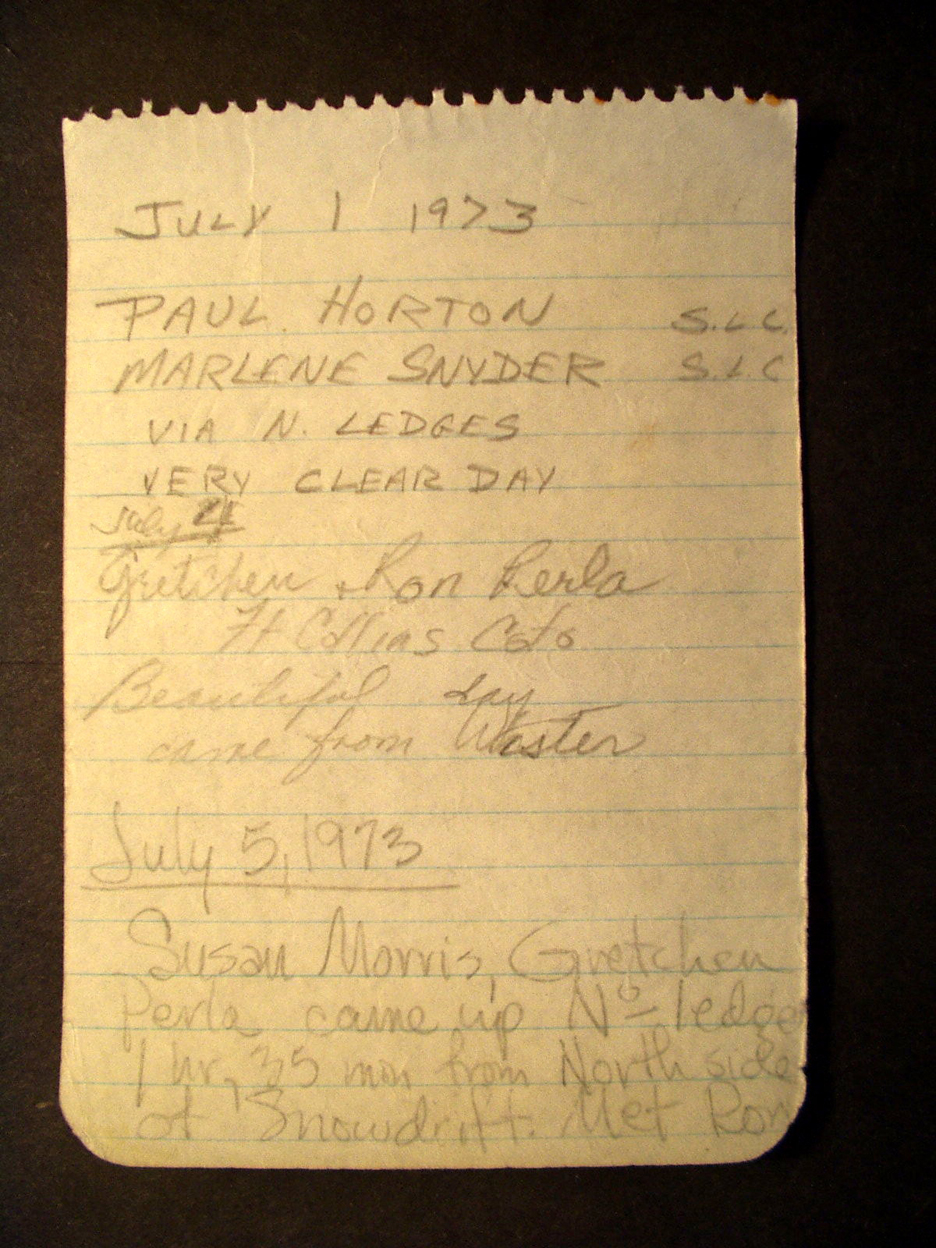 JULY 1 1973
PAUL HORTON S.L.C.
MARLENE SNYDER S.L.C
VIA N. LEDGES
VERY CLEAR DAY
July 4
Gretchen + Ron Perla
Ft Collins Colo
Beautiful day
came from
July 5, 1973
Susan Morris, Gretchen
Perla came up No ledge
1 hr, 35 min from North side
of Snowdrift. Met Ron